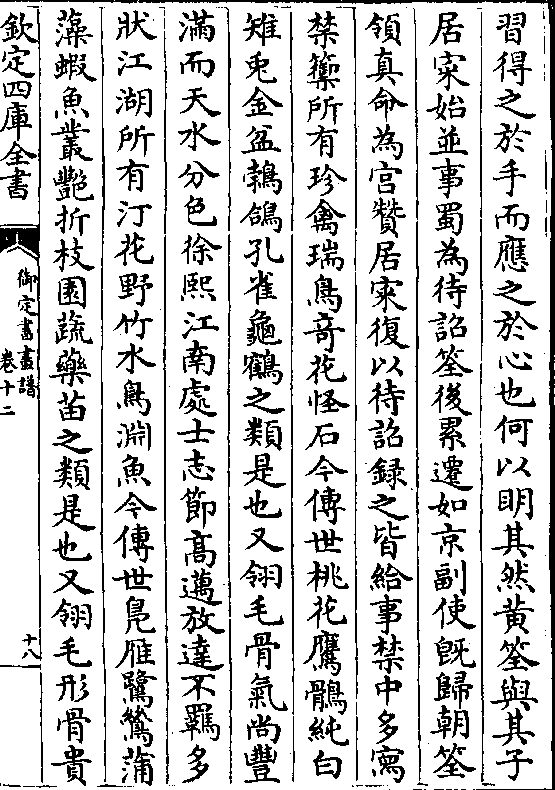 習得之於手而應之於心也何以明其然黄筌與其子
居寀始並事蜀為待詔筌後累遷如京副使旣歸朝筌
領真命為宫贊居寀復以待詔録之皆給事禁中多寫
禁籞所有珍禽瑞鳥竒花怪石今傳世桃花鷹鶻純白
雉兎金盆鵓鴿孔雀龜鶴之類是也又翎毛骨氣尚豐
滿而天水分色徐熙江南處士志節髙邁放達不羈多
狀江湖所有汀花野竹水鳥淵魚今傳世鳬雁鷺鷥蒲
藻蝦魚叢艷折枝園蔬藥苗之類是也又翎毛形骨貴
欽定四庫全書
御定書畫譜
卷十二
十八